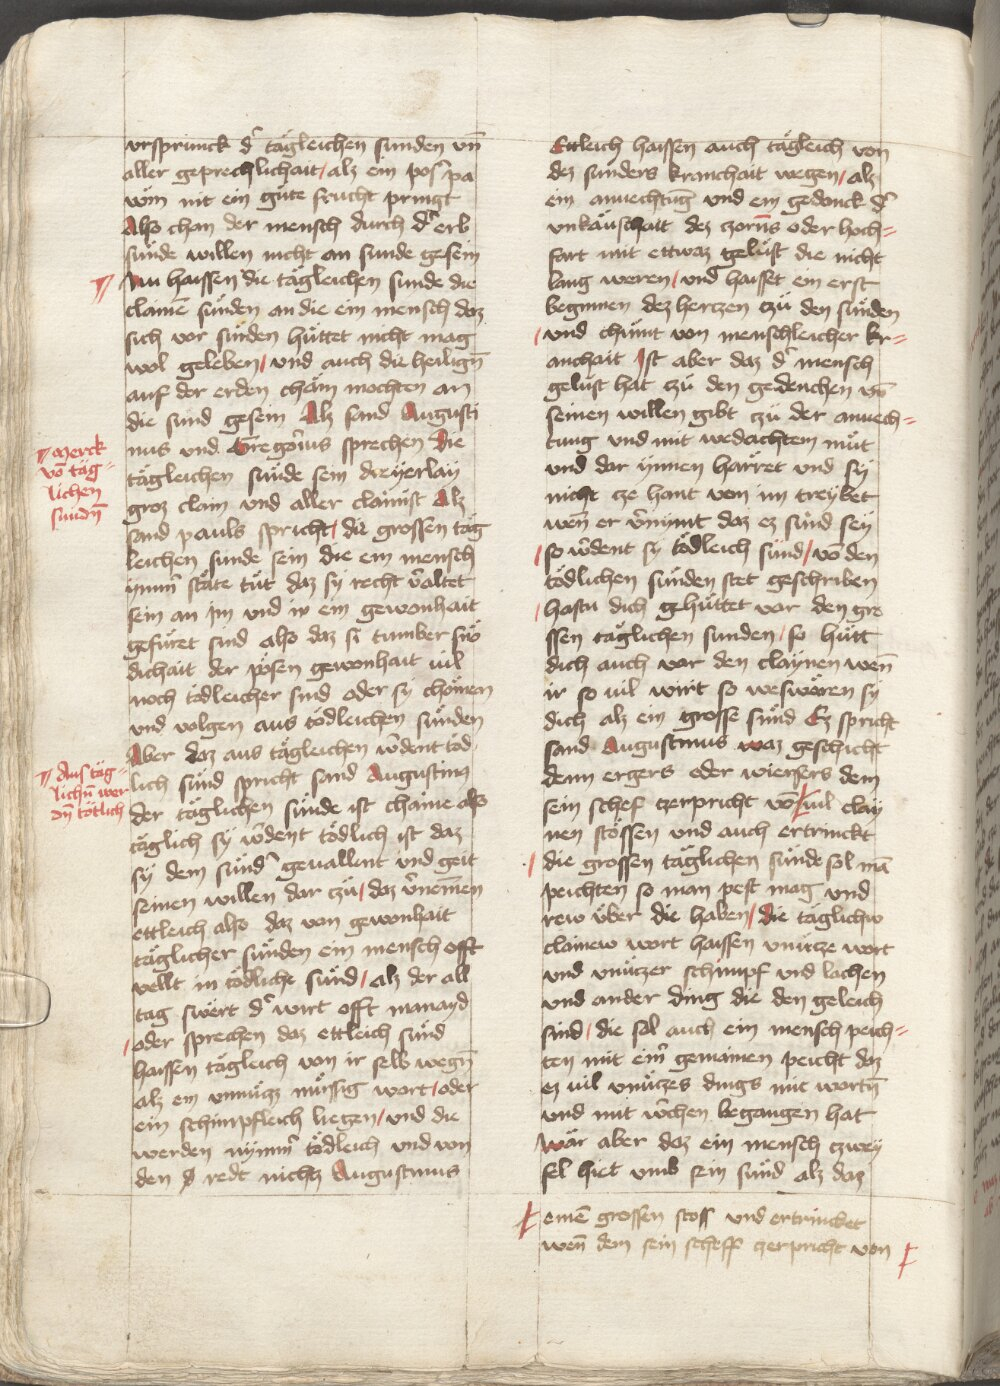 ursprunck d̕ tägleichen sunden vn̄
aller geprechlichait / alz ein pos̕ pa
wm̄ nit ein gute frucht pringt
Also chan der mensch durch d̕ erb
sünde willen nicht an sunde gesein
Nu haissen die tägleichen sunde die
clainē sünden an die ein mensch daz
sich vor sünden hüttet nicht mag
wol geleben / vnd auch die heilign̄
auf der erden chäm mochten an
die sund gesein Alz sand Augusti
nus vnd Gregorius sprechen Die
tägleichen sünde sein dreyerlay
groz clain vnd aller clainist Alz
sand pauls spricht / die grossen täg
leichen sunde sein die ein mensch
ymm̕ stäte tüt daz sy recht v̕altet
sein an im vnd in ein gewonhait
gefüret sind also daz si tumber
dichait der pösen gewonhait vil
noch tödleicher sind oder sy chömen
vnd volgen aus tödleichen sünden
Aber daz aus tägleichen w̕dent töd
lich sünd spricht sand Augustinus
der täglichen sünde ist chaine also
täglich sy w̕dent tödlich ist daz
sy dem sünd̕ geuallent vnd geit
seinen willen dar zü / daz v̕nemen
ettleich also daz von gewonhait
täglicher sünden ein mensch offt
vellt in tödliche sünd / alz der all
tag swert d̕ wirt offt mainayd
/ oder sprechen daz ettleich sünd
haissen tägleich von ir selb wegn̄
alz ein vnnücz müssig wort / oder
ein schimpfleich liegen / vnd die
werden nymm̕ tödleich vnd von
den redt nichtz Augustinus
Merck
vō täg-
lichen
sundn̄
Aus täg-
lichn̄ wer
dn̄ tötlich
Ettleich haissen auch tägleich von
dez sunders kranchait wegen / alz
ein anuechtūg vnd ein gedanck d̕
vnkäuschait dez zorns oder hoch-
fart mit ettwaz gelüst die nicht
lang weren / vnd haisset ein erst
beginnen dez herczen czü den sünden
/ vnd chümt von menschleicher kr-
anchait Ist aber daz d̕ mensch
gelüst hat czü den gedencken vn̄
seinen willen gibt czü der anuech-
tung vnd mit wedachtem müt
vnd dar ynnen harret vnd sy
nicht cze hant von im treybet
wen̄ er v̕nymt daz ez sünd sey
/ so w̕dent sy tödleich sünd / vō den
tödlichen sünden stet geschriben
/ hastu dich gehüttet vor den gro
ssen täglichen sunden / so hütt
dich auch vor den claynen wen̄
ir so vil wirt so weswären sy
dich alz ein grosse sünd Ez spricht
sand Augustinus waz geschicht
denn ergers oder wiersers dem
sein schef czerpricht vō vil clay
nen stössen vnd auch ertrinckt
/ die grossen täglichen sünde sol mā
peichten so man pest mag vnd
rew über die haben / die täglichw
clainew wort haissen vnücze wort
vnd vnüczer schimpf vnd lachen
vnd ander ding die den geleich
sind / die sol auch ein mensch peich-
ten mit ein̕ gemainen peicht daz
ez vil vnüczes dings mit wortn̄
vnd mit w̕chen begangen hat
Wär aber daz ein mensch czwey
fel hiet vmb sein sünd alz daz
einē grossen stoss vnd ertrincket
wen̄ dem sein scheff czerpricht von